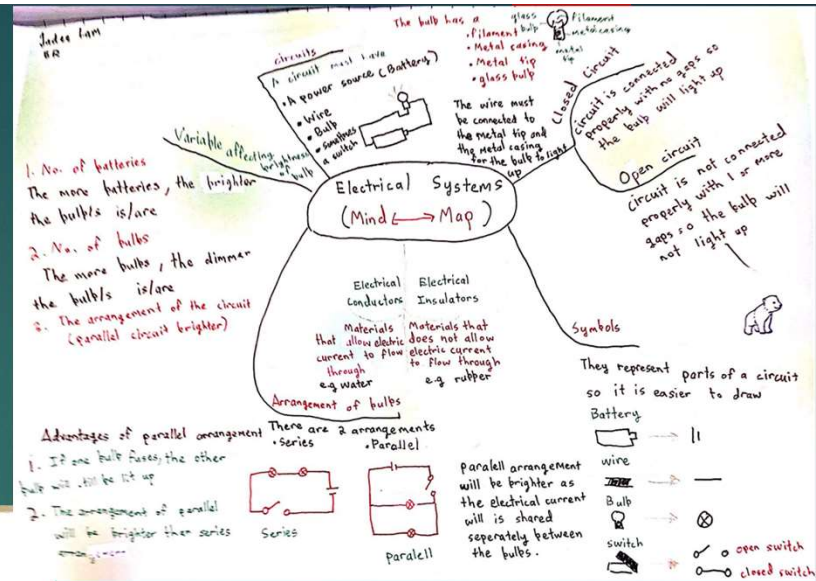 Jadee Lam
The bulb has a
• filament
• Metal casing
• Metal tip
• glass bulb
glass
bulb
filament
metal casing
metal
tip
circuits
A circuit must have
• A power source (Battery)
• Wire
• Bulb
• sometimes
a switch
The wire must
be connected to
the metal tip and
the metal casing
for the bulb to light
up
Closed Circuit
circuit is connected
properly with no gaps so
the bulb will light up
Open circuit
circuit is not connected
properly with 1 or more
gaps so the bulb will
not light up
Variable affecting
brightness
of bulb
1. No. of batteries
The more batteries, the brighter
the bulb/s is/are
2. No. of bulbs
The more bulbs, the dimmer
the bulb/s is/are
3. The arrangement of the circuit
(parallel circuit brighter)
Electrical Systems
(Mind Map)
Electrical
Conductors
Materials
that allow electric
current to flow
through
e.g water
Electrical
Insulators
Materials that
does not allow
electric current
to flow through
e.g rubber
Symbols
They represent parts of a circuit
so it is easier to draw
Battery
wire
Bulb
switch
open switch
closed switch
Arrangement of bulbs
There are 2 arrangements
• Series
• Parallel
Series
Paralell
paralell arrangement
will be brighter as
the electrical current
will is shared
seperately between
the bulbs.
Advantages of parallel arrangement
1. If one bulb fuses, the other
bulb will still be lit up
2. The arrangement of parallel
will be brighter than series